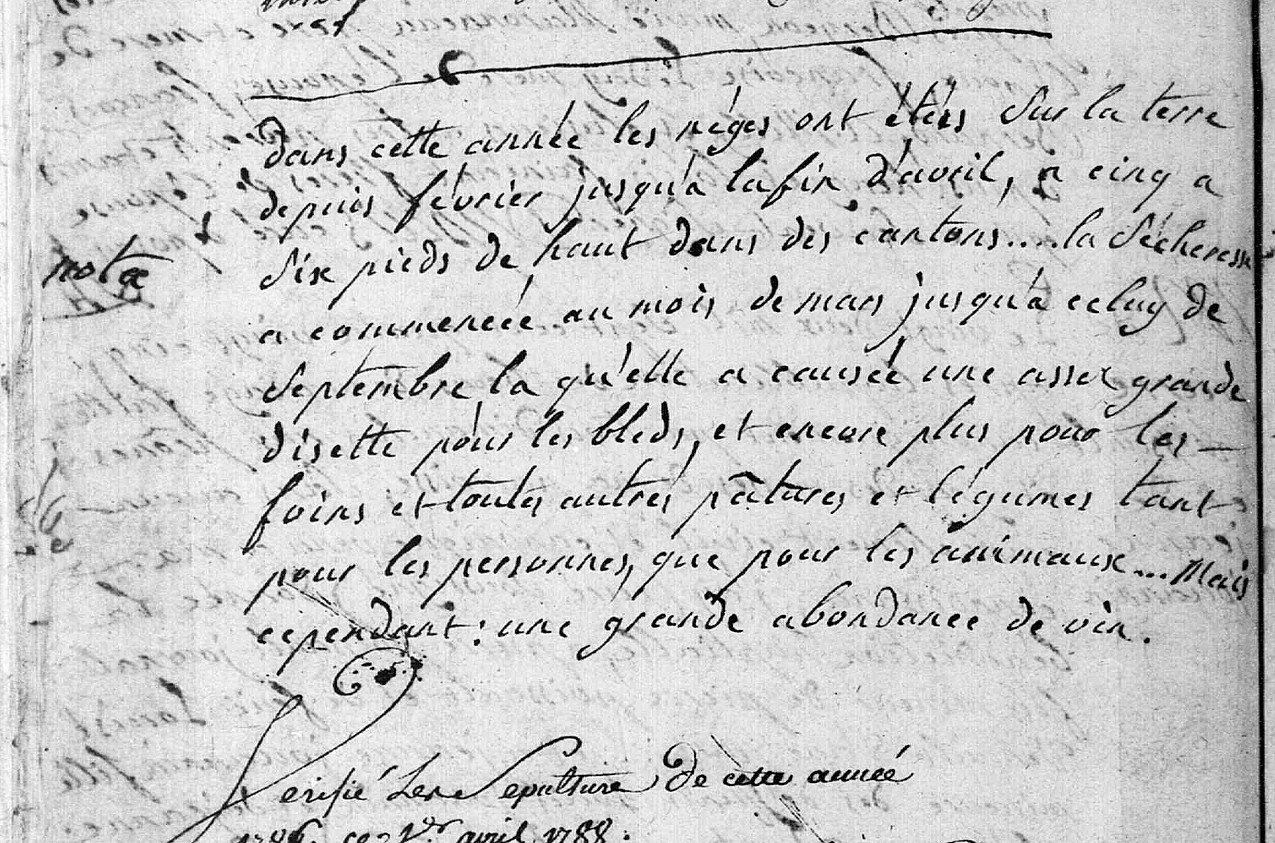 nota
dans cette année les néges ont étées sur la terre
depuis février jusqu'a la fin d'avril, a cinq a
six pieds de haut dans des cantons.... la sécheresse
a commencéé au mois de mars jusqu'a celuy de
septembre la qu'elle a causéé une assez grande
disette pour les bleds, et encore plus pour les –
foins et toutes autres pâtures et légumes tant
pour les personnes, que pour les animaux... Mais
cependant : une grande abondance de vin.
Verifié les Sepulture de cette année
1786. ce 1er. avril 1788.